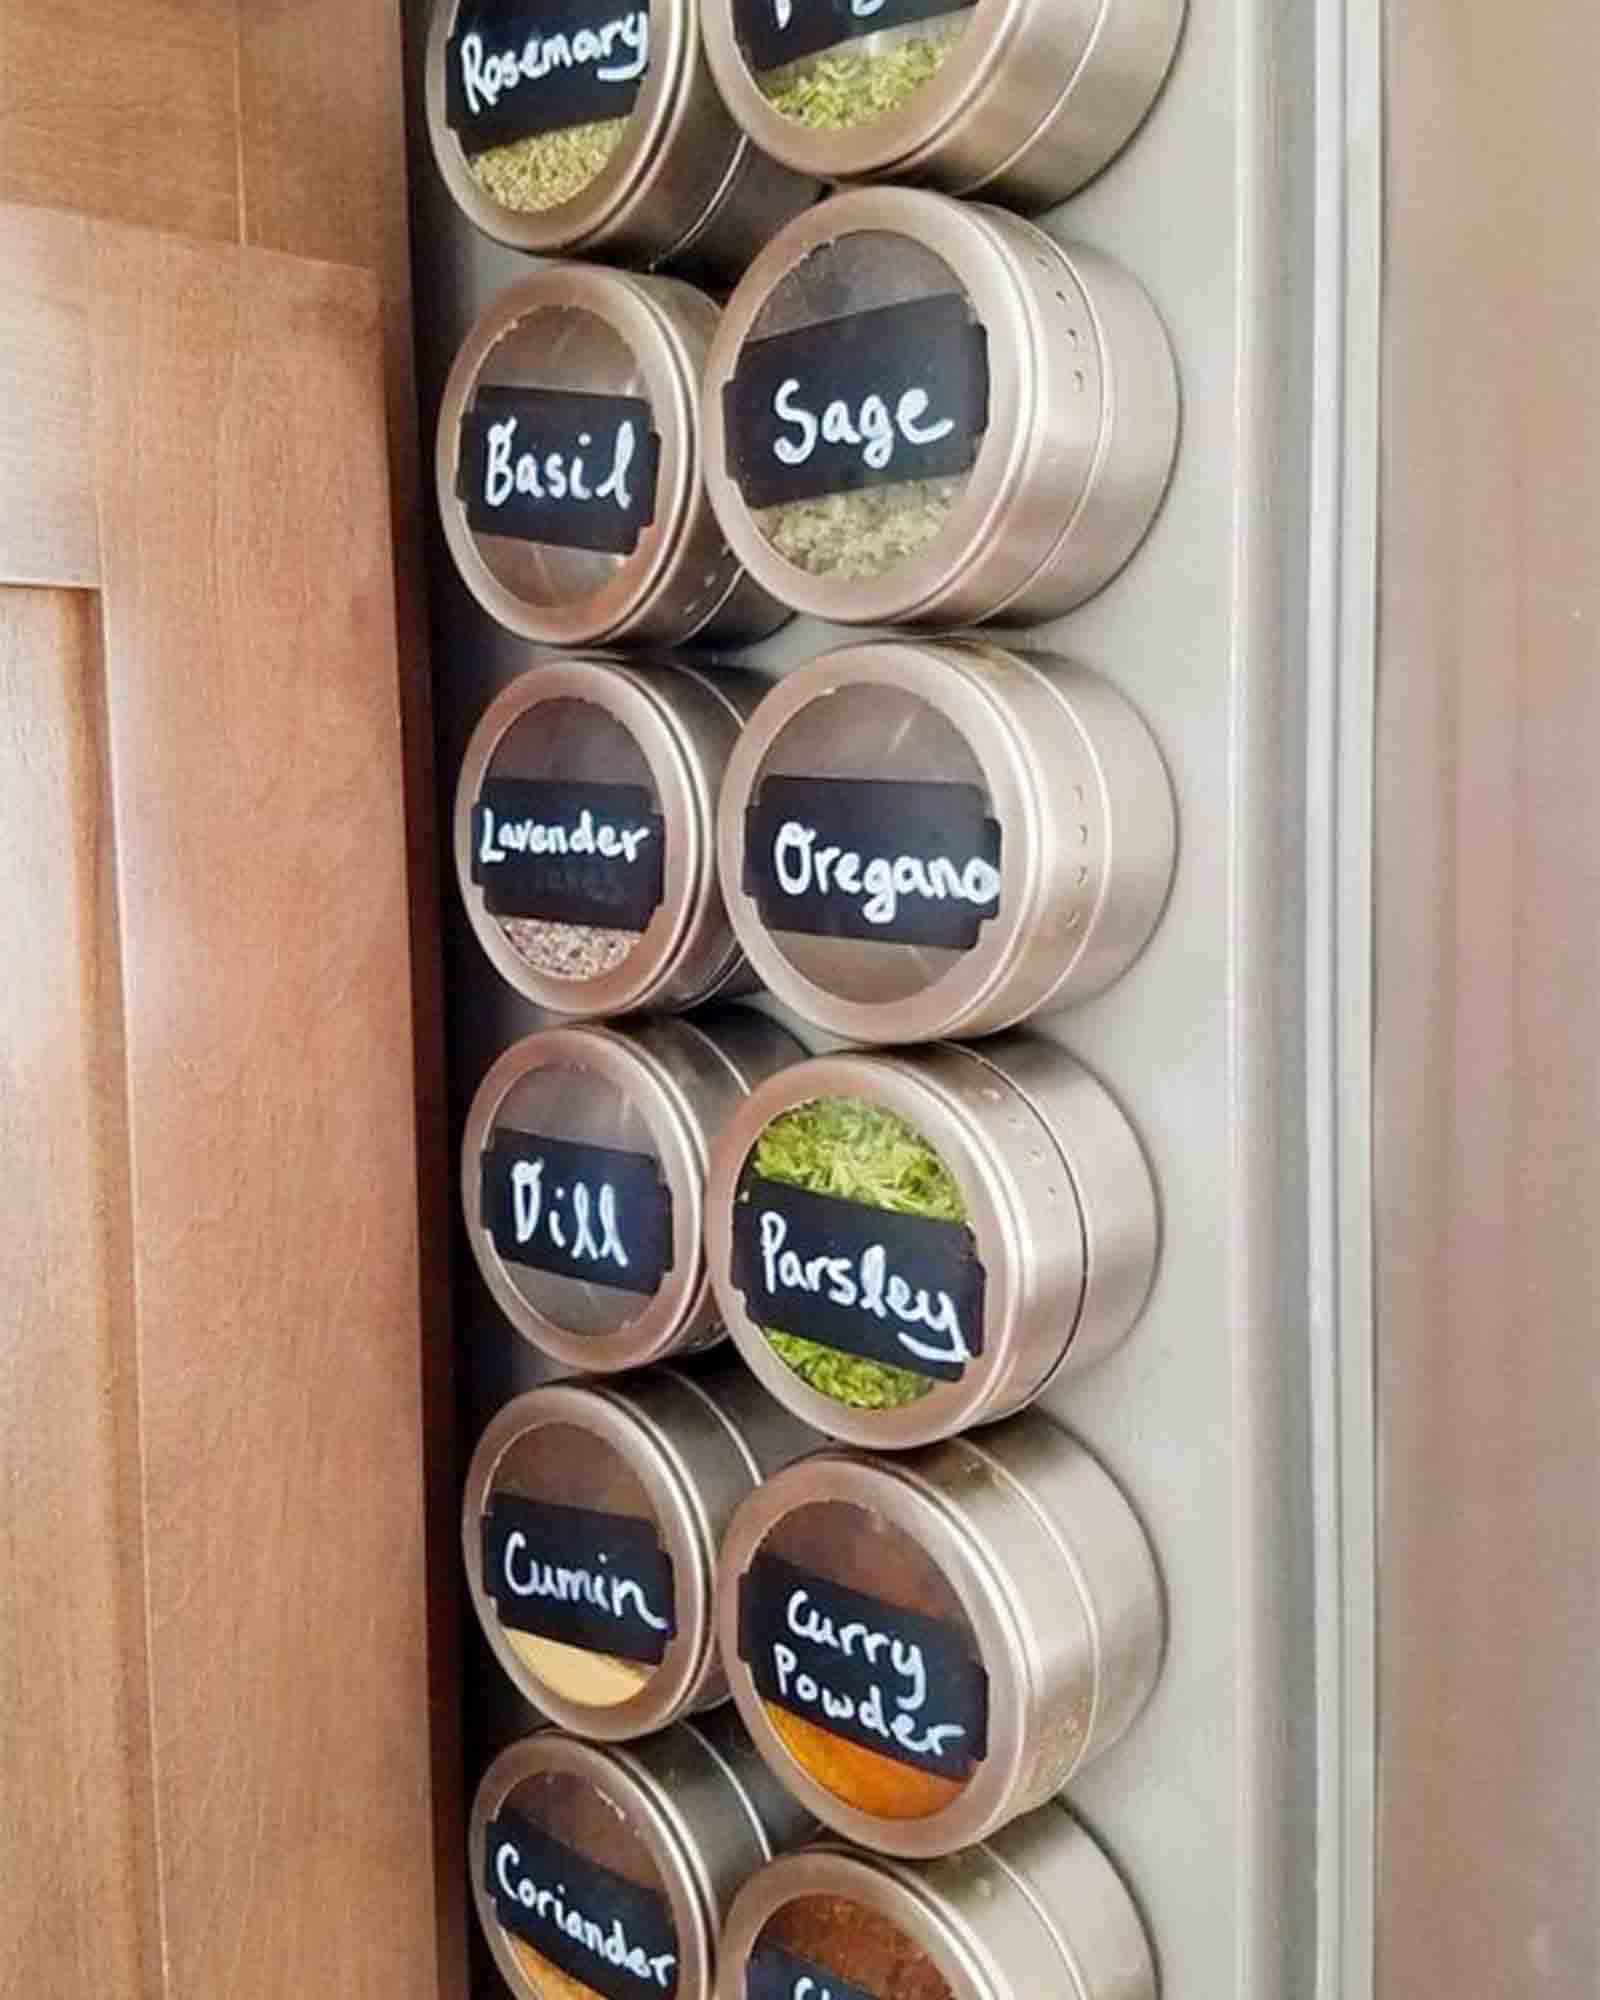 Rosemary
Basil
Sage
Lavender
Oregano
Dill
Parsley
Cumin
Curry
Powder
Coriander